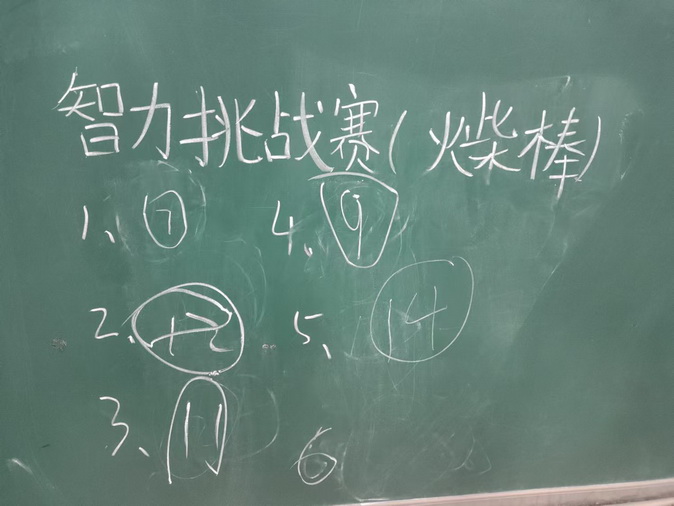 智力挑战赛(火柴棒)
1、7
4、9
2、12
5、14
3、11
6